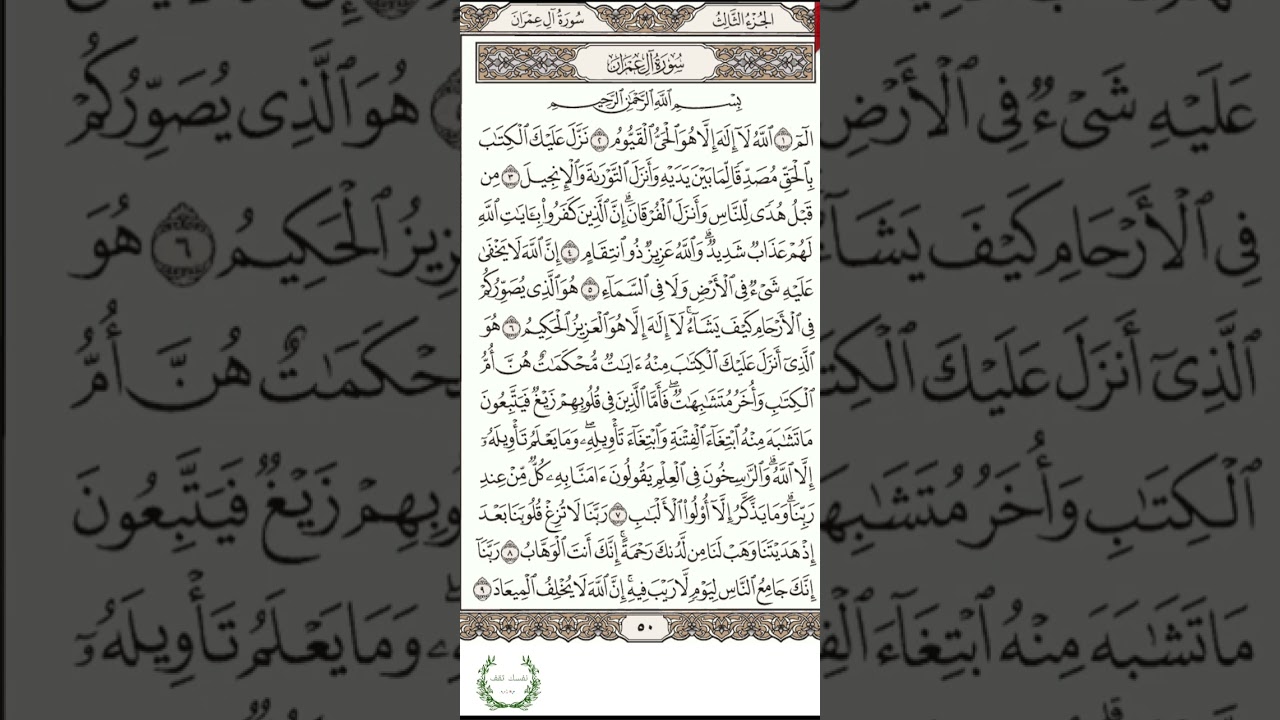 الجُزْءُ الثَّالِثُ
سُورَةُ آلِ عِمْرَانَ
سُورَةُ آلِ عِمْرَانَ
بِسْمِ ٱللَّهِ ٱلرَّحْمَٰنِ ٱلرَّحِيمِ
الٓمٓ ١ ٱللَّهُ لَآ إِلَٰهَ إِلَّا هُوَ ٱلْحَىُّ ٱلْقَيُّومُ ٢ نَزَّلَ عَلَيْكَ ٱلْكِتَٰبَ
بِٱلْحَقِّ مُصَدِّقًا لِّمَا بَيْنَ يَدَيْهِ وَأَنزَلَ ٱلتَّوْرَىٰةَ وَٱلْإِنجِيلَ ٣ مِن
قَبْلُ هُدًى لِّلنَّاسِ وَأَنزَلَ ٱلْفُرْقَانَ ۗ إِنَّ ٱلَّذِينَ كَفَرُوا۟ بِـَٔايَٰتِ ٱللَّهِ
لَهُمْ عَذَابٌ شَدِيدٌ ۗ وَٱللَّهُ عَزِيزٌ ذُو ٱنتِقَامٍ ٤ إِنَّ ٱللَّهَ لَا يَخْفَىٰ
عَلَيْهِ شَىْءٌ فِى ٱلْأَرْضِ وَلَا فِى ٱلسَّمَآءِ ٥ هُوَ ٱلَّذِى يُصَوِّرُكُمْ
فِى ٱلْأَرْحَامِ كَيْفَ يَشَآءُ ۚ لَآ إِلَٰهَ إِلَّا هُوَ ٱلْعَزِيزُ ٱلْحَكِيمُ ٦ هُوَ
ٱلَّذِىٓ أَنزَلَ عَلَيْكَ ٱلْكِتَٰبَ مِنْهُ ءَايَٰتٌ مُّحْكَمَٰتٌ هُنَّ أُمُّ
ٱلْكِتَٰبِ وَأُخَرُ مُتَشَٰبِهَٰتٌ ۖ فَأَمَّا ٱلَّذِينَ فِى قُلُوبِهِمْ زَيْغٌ فَيَتَّبِعُونَ
مَا تَشَٰبَهَ مِنْهُ ٱبْتِغَآءَ ٱلْفِتْنَةِ وَٱبْتِغَآءَ تَأْوِيلِهِۦ ۗ وَمَا يَعْلَمُ تَأْوِيلَهُۥٓ
إِلَّا ٱللَّهُ ۗ وَٱلرَّٰسِخُونَ فِى ٱلْعِلْمِ يَقُولُونَ ءَامَنَّا بِهِۦ كُلٌّ مِّنْ عِندِ
رَبِّنَا ۗ وَمَا يَذَّكَّرُ إِلَّآ أُو۟لُوا۟ ٱلْأَلْبَٰبِ ٧ رَبَّنَا لَا تُزِغْ قُلُوبَنَا بَعْدَ
إِذْ هَدَيْتَنَا وَهَبْ لَنَا مِن لَّدُنكَ رَحْمَةً ۚ إِنَّكَ أَنتَ ٱلْوَهَّابُ ٨ رَبَّنَآ
إِنَّكَ جَامِعُ ٱلنَّاسِ لِيَوْمٍ لَّا رَيْبَ فِيهِ ۚ إِنَّ ٱللَّهَ لَا يُخْلِفُ ٱلْمِيعَادَ ٩
٥٠
ثقف نفسك